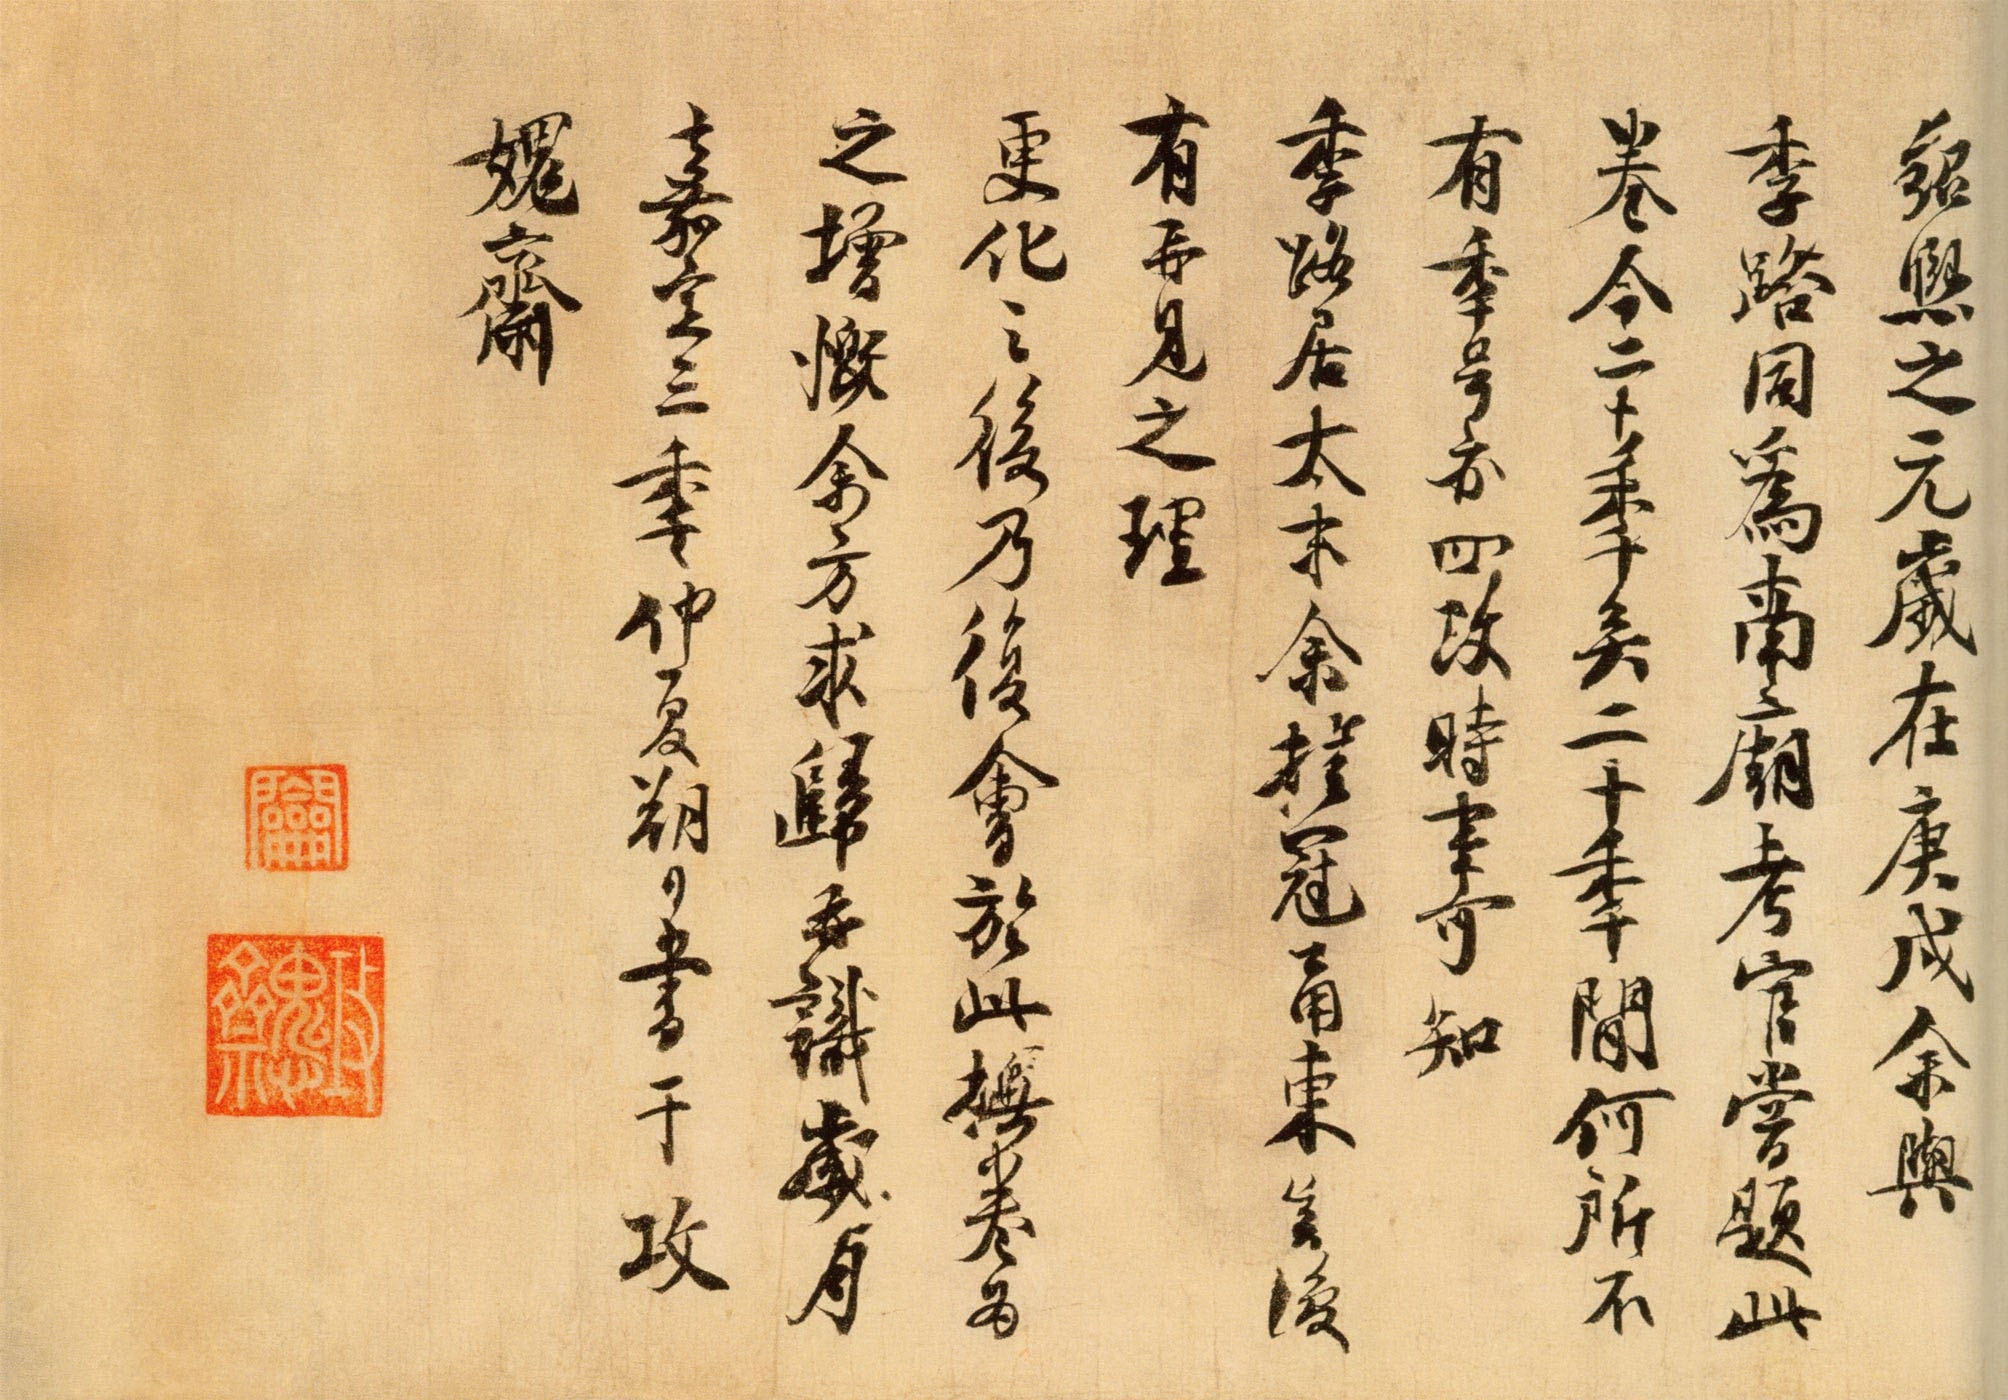 紹熙之元歲在庚戌余與
季路同爲南廟考官嘗題此
卷今二十季矣二十季間何所不
有季号亦四改時事可知
季路居太末余挂冠甬東無復
有再見之理
更化之後乃復會於此撫卷爲
之增慨余方求歸再識歲月
嘉定三季仲夏朔日書于攻
媿齋
攻媿齋